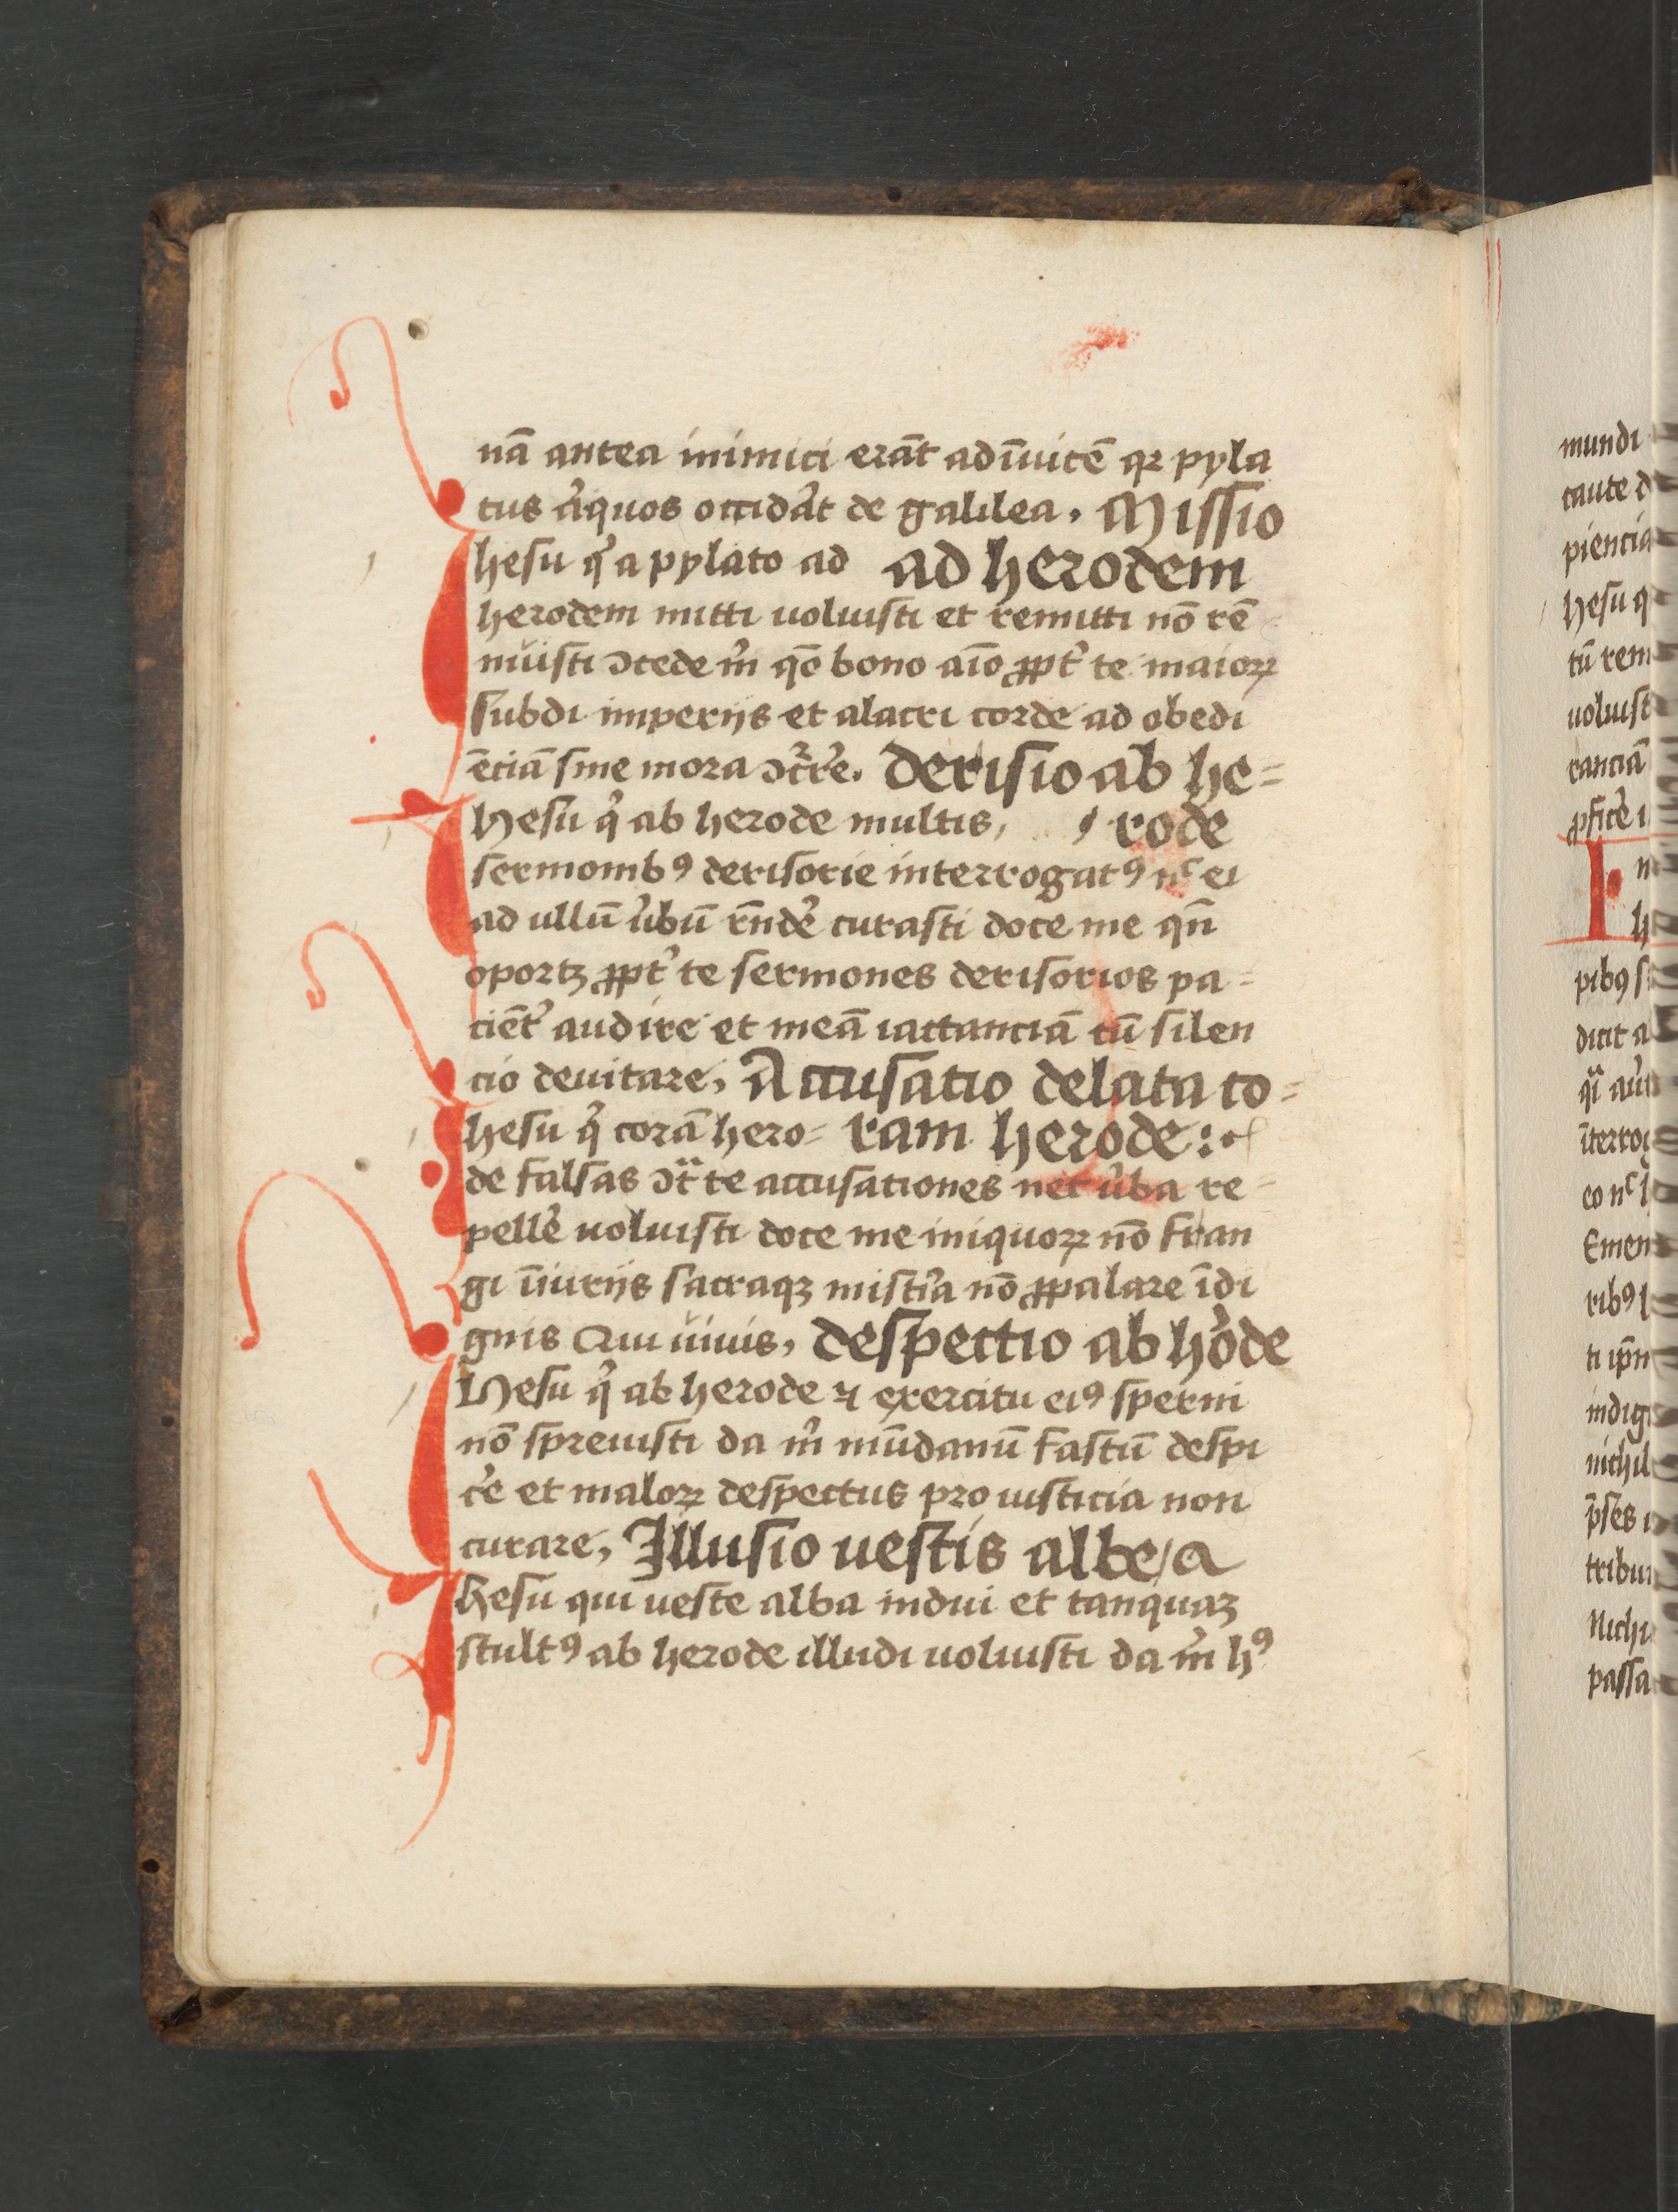 nā antea inimici erāt adīuicē qꝛ pyla
tus aͥquos occidāt de galilea, Missio
Ihesu qͥ a pylato ad ad herodem
herodem mitti uoluisti et remitti nō rē
nuisti ɔcede m̄ qō bono aīo ꝓpt̕ te maioꝝ
subdi imperijs et alacri corde ad obedi
ēciā sine mora ɔcͬrẽ. Derisio ab he=
Ihesu qͥ ab herode multis, rode
sermonibꝯ derisorie interrogatꝯ nͨ ei
ad ullū u̕bū rn̄de̕ curasti doce me qn̄
oportꝫ ꝓpt̕ te sermones derisorios pa=
ciēt̕ audire et meā iactanciā cū silen
cio deuitare, Accusatio delata co=
Ihesu qͥ corā hero= ram herode:
de falsas ɔtͣ te accusationes nec u̕ba re=
pelle̕ uoluisti doce me iniquoꝝ nō fran
gi īiurijs sacraqꝫ mist̕ia nō ꝓpalare īdi
gnis Qui uiuis, despectio ab h̕ode
Ihesu qͥ ab herode ⁊ exercitu eiꝯ sperni
nō spreuisti da m̄ mūdanū fastū despi
ce̕ et maloꝝ despectus pro iusticia non
curare, Illusio uestis albe
Ihesu qui ueste alba indui et tanquaꝫ
stultꝯ ab herode illudi uoluisti da m̄ hꝯ
mundi
caute d
piencia
hesu q
tū rem
uoluist
ranciā
ꝓfice̕ i
I n
h
pibꝯ s
dicit a
qͣi
īterrog
eo nͨ
Emen
ribꝯ l
ti ip̄
indig
nichil
p̄ses
tribu
Nichi
passa